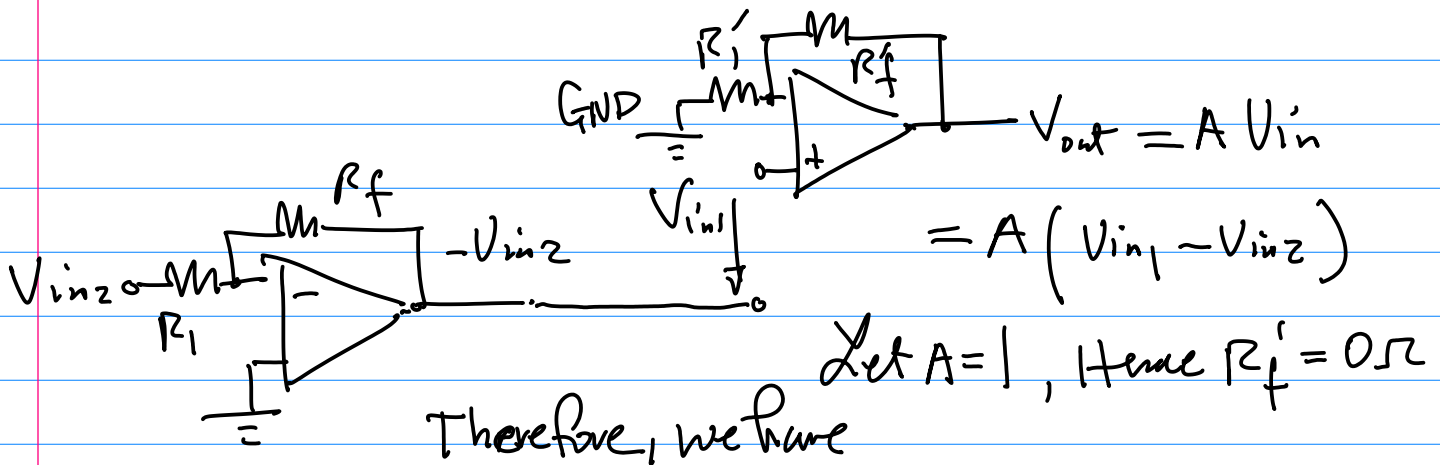 R₁′
Rf′
GND
Vout = A Vin
+
Rf
Vin1
-Vin2
= A (Vin1 - Vin2)
Vin2
-
R1
Let A=1, Hence Rf′=0Ω
Therefore, we have